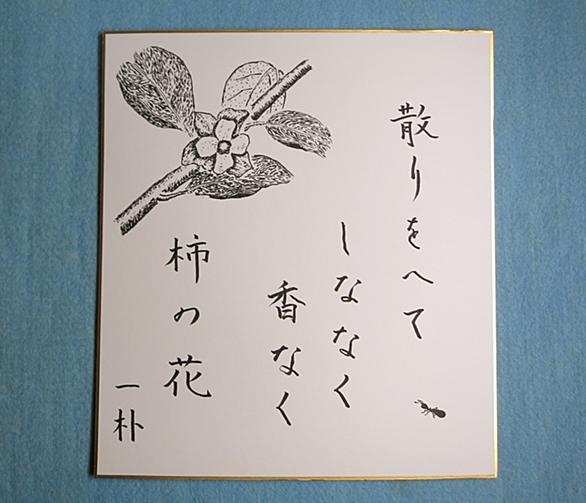 散りをへて
しななく
香なく
柿の花
一朴